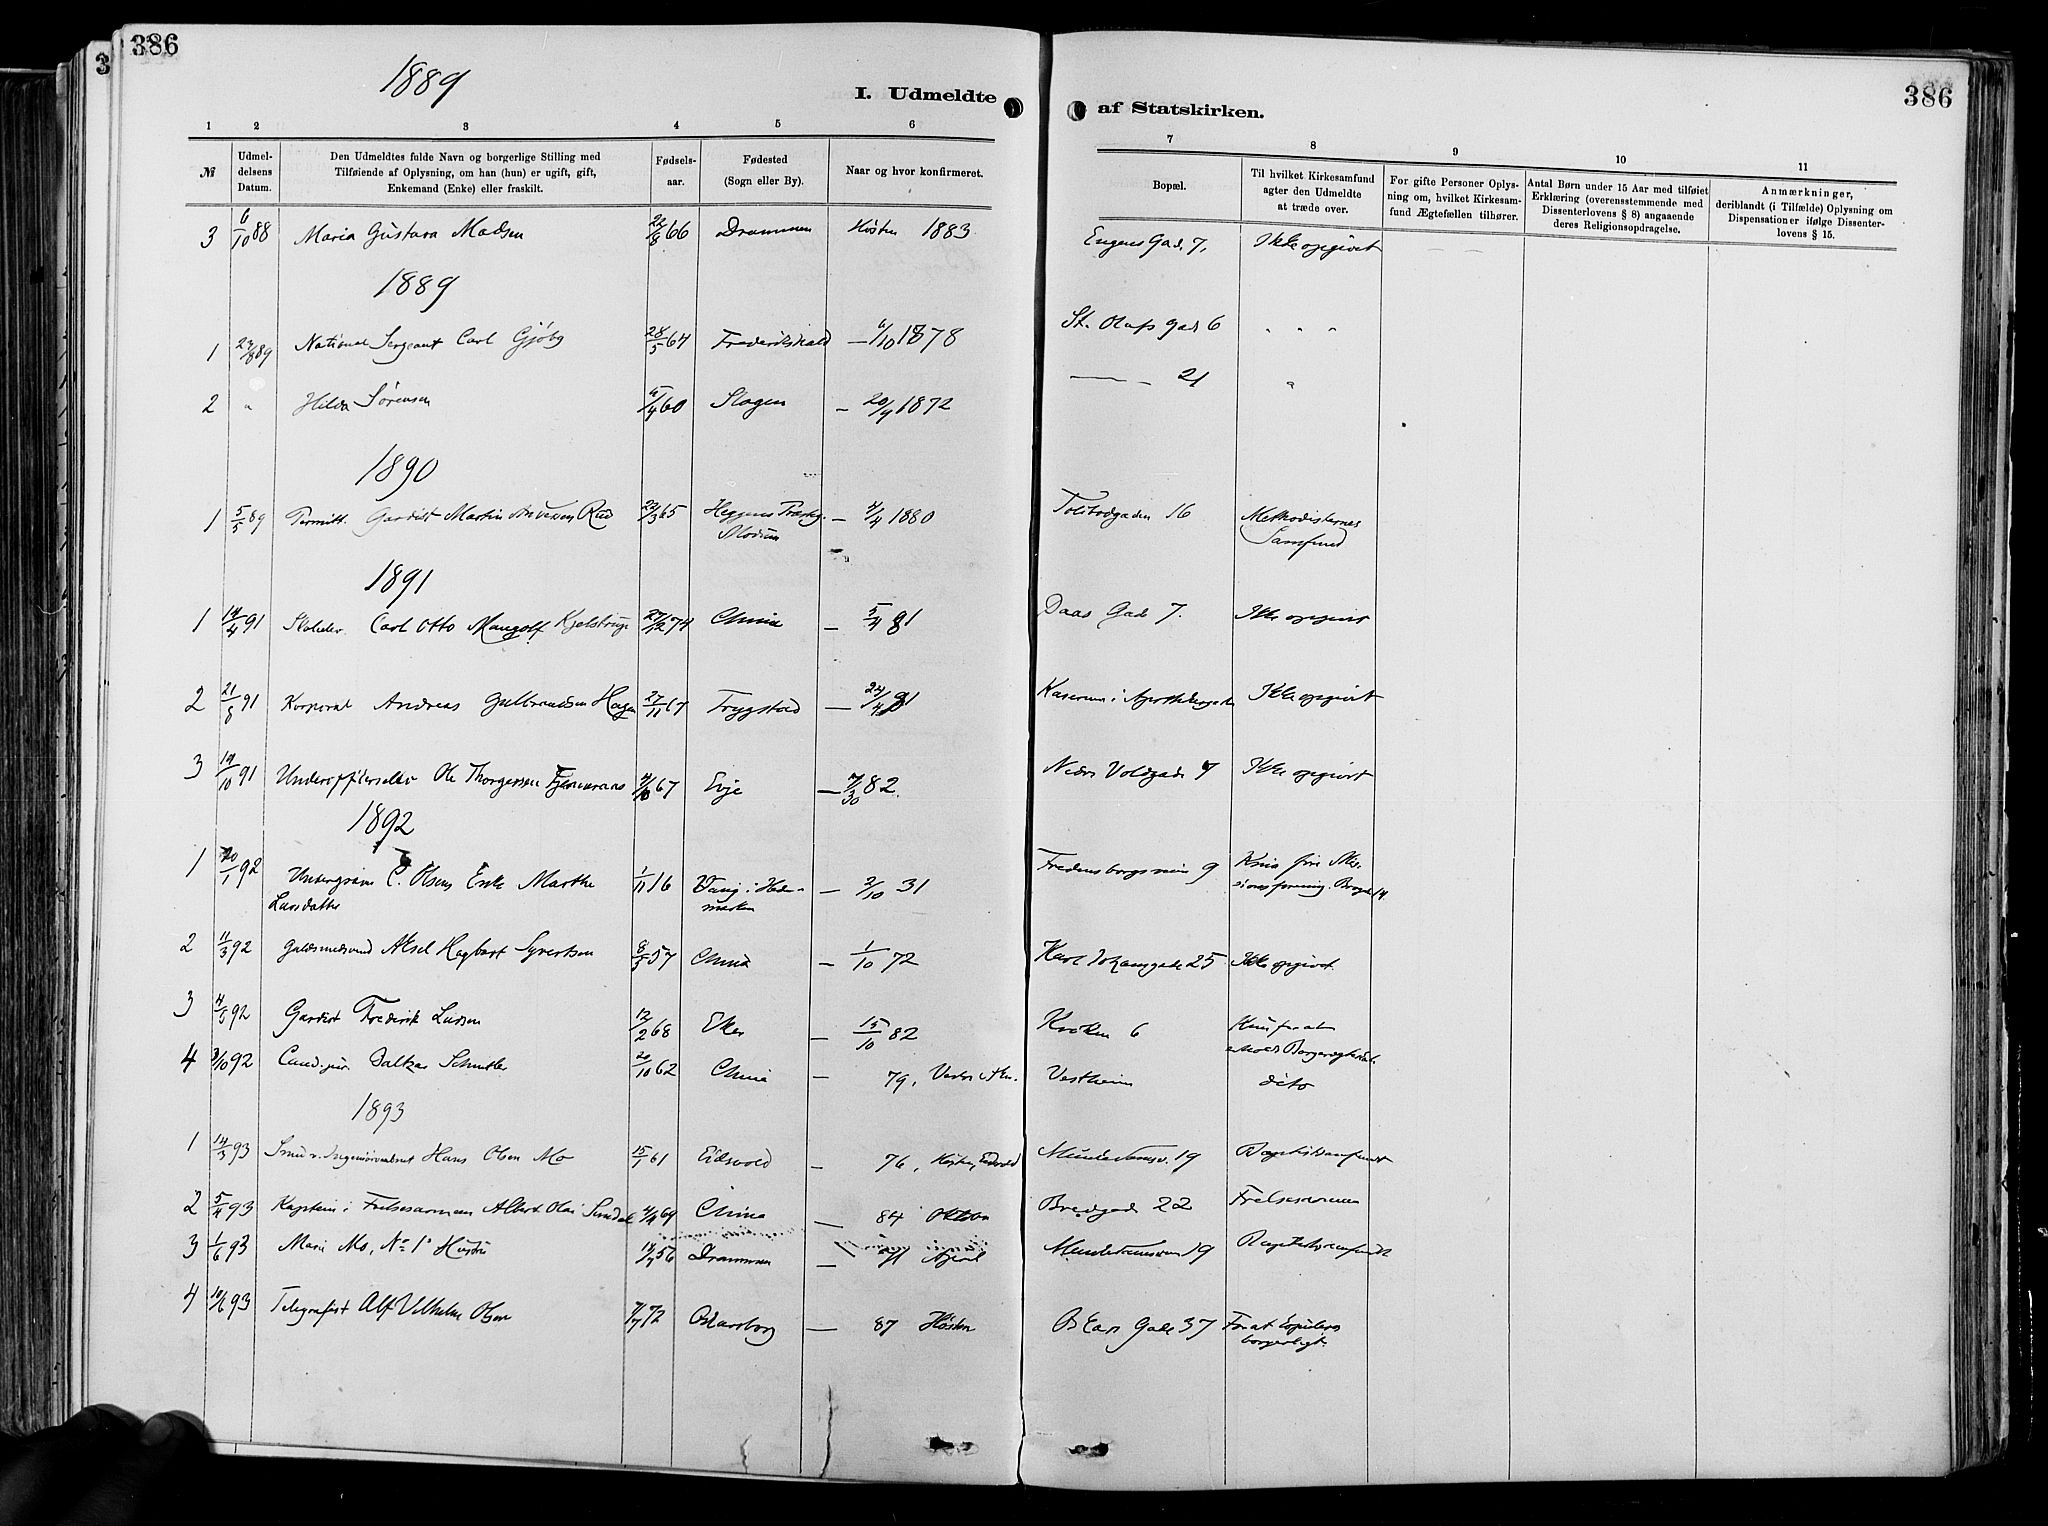 386
3
1889
I. Udmeldte af Statskirken.
386
1 2 3 4 5 6 7 8 9 10 11
№
Udmel-
delsens
Datum.
Den Udmeldtes fulde Navn og borgerlige Stilling med
Tilføiende af Oplysning, om han (hun) er ugift, gift,
Enkemand (Enke) eller fraskilt.
Fødsels-
aar.
Fødested
(Sogn eller By).
Naar og hvor konfirmeret.
Bopæl.
Til hvilket Kirkesamfund
agter den Udmeldte
at træde over.
For gifte Personer Oplys-
ning om, hvilket Kirkesam-
fund Ægtefællen tilhører.
Antal Børn under 15 Aar med tilføiet
Erklæring (overensstemmende med
Dissenterlovens § 8) angaaende
deres Religionsopdragelse.
Anmærkninger,
deriblandt (i Tilfælde) Oplysning om
Dispensationer ifølge Dissenter-
lovens § 15.
3 6/10 88 Maria Gustava Madsen 22/8 66 Drammen Høsten 1883 Engens Gad. 7. Ikke opgivet — —
1889
1 23/8 89 National Sergeant Carl Gjöby 28/5 64 Frederikshald — 6/10 1878 St. Olafs Gad 6 " " "
2 " Hilda Sørensen 4/4 60 Slagen — 20/9 1872 — — 21 "
1890
1 5/5 89 Permitt. Gardist Martin Rud 22/3 65 Heggens — 4/4 1880 16 Methodisternes
Modum Samfund
1891
1 14/4 91 Carl Otto Kjelstrup 27/12 74 Chria — 5/4 91 Daas Gade 7. Ikke opgivet
2 21/8 91 Korporal Andreas Gulbrandsen Hagen 27/11 67 Trygstad — Kasernen i Ikke opgivet
3 14/10 91 Underoffierselev Ole Thorgersen 67 Evje — 82. Nedre Voldgade 7 Ikke opgivet
1892
1 20/1 92 C. Olsens Enke Marthe 1/11 16 Vang i Hede- — 2/10 31 Fredensborgveien 9
Larsdatter marken
2 11/3 92 Guldsmedsvend Aksel Hagbart Syvertsen 8/5 57 Chria — 1/10 72 Karl Johansgade 25 Ikke opgivet
3 4/5 92 Gardist Frederik Larsen 12/2 68 Eker — 15/10 82 Kroken 6 Kun for at
4 3/10 92 Cand. jur. Schnitler 20/10 62 Chria — 79, Vestheim dito
1893
1 14/3 93 Smed Hans Olsen Mo 15/1 61 Eidsvold — 76, Høsten, Eidsvold 19 Baptistsamfundet
2 5/4 93 Kaptein i Frelsesarmeen Albert Olai 4/4 69 Chria — 84 Oktober Bredgade 22 Frelsesarmeen
3 1/6 93 Marie Mo, No 1s Hustru 14/7 56 Drammen — 71 April 19 Baptistsamfundet
4 10/6 93 Telegrafist Alf Vilhelm Olsen 7/7 72 Oskarsborg — 87 Høsten Oskars Gade 37 For at
borgerligt.